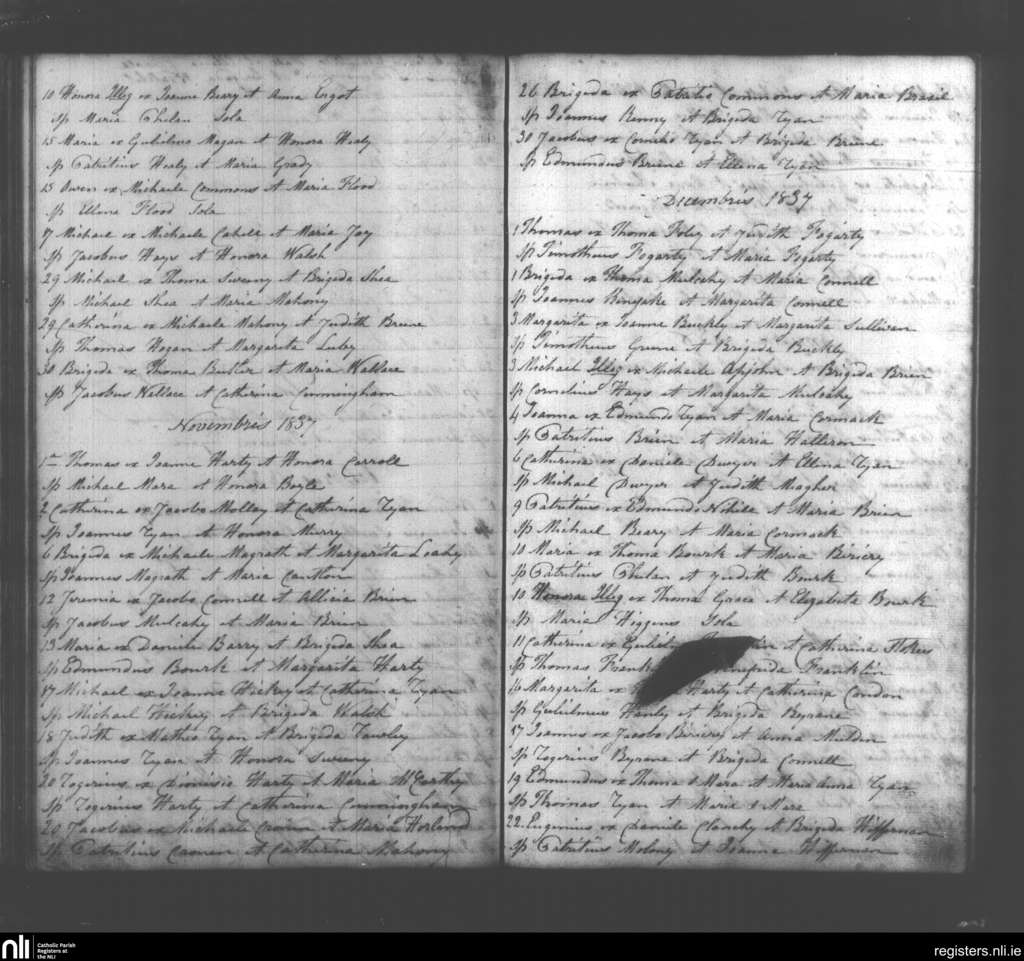 10 Honora Illeg ex Joanne Beary et Anna
Sp Maria Phelan Sola
15 Maria ex Gulielmo Magan et Honora Healy
Sp Patritius Healy et Maria Grady
15 Owen ex Michaele Commons et Maria Flood
Sp Ellena Flood Sola
17 Michael ex Michaele Cahill et Maria Joy
Sp Jacobus Hays et Honora Walsh
29 Michael ex Thoma Sweeny et Brigida Shea
Sp Michael Shea et Maria Mahony
29 Catherina ex Michaele Mahony et Judith Breine
Sp Thomas Hogan et Margarita Luby
30 Brigida ex Thoma Butler et Maria Wallace
Sp Jacobus Wallace et Catherina Cunningham
Novembris 1837
1 Thomas ex Joanne Harty et Honora Carroll
Sp Michael Mara et Honora Boyle
2 Catherina ex Jacobo Molloy et Catherina Ryan
Sp Joannes Ryan et Honora Murry
6 Brigida ex Michaele Magrath et Margarita Leahy
Sp Joannes Magrath et Maria Cantlon
12 Jeremia ex Jacobo Connell et Allicia Brien
Sp Jacobus Mulcahy et Maria Brien
13 Maria ex Daniele Barry et Brigida Shea
Sp Edmundus Bourk et Margarita Harty
17 Michael ex Joanne Hickey et Catherina Ryan
Sp Michael Hickey et Brigida Walsh
18 Judith ex Matheo Ryan et Brigida
Sp Joannes Ryan et Honora Sweeny
20 Rogerius ex Dionisio Harty et Maria McCarthy
Sp Rogerius Harty et Catherina Cunningham
20 Jacobus ex Michaele et Maria
Sp Patritius et Catherina Mahony
26 Brigida ex Patritio Commons et Maria Brasil
Sp Joannes Kenny et Brigida Ryan
30 Jacobus ex Ryan et Brigida Breine
Sp Edmundus Breine et Ellena Ryan
Decembris 1837
1 Thomas ex Thoma Foley et Judith Fogarty
Sp Timotheus Fogarty et Maria Fogarty
1 Brigida ex Thoma Mulcahy et Maria Connell
Sp Joannes et Margarita Connell
3 Margarita ex Joanne Buckly et Margarita Sullivan
Sp Timotheus Greene et Brigida Buckly
3 Michael Illeg ex Michaele Apjohn et Brigida Brien
Sp Cornelius Hays et Margarita Mulcahy
4 Joanna ex Edmundo Ryan et Maria Cormack
Sp Patritius Brien et Maria Halleron
6 Catherina ex Daniele Dwyer et Ellena Ryan
Sp Michael Dwyer et Judith Meagher
9 Patritius ex Edmundo Nihile et Maria Brien
Sp Michael Beary et Maria Cormack
10 Maria ex Thoma Bourk et Maria
Sp Patritius Phelan et Judith Bourk
10 Honora Illeg ex Thoma Grace et Elizabeta Bourk
Sp Maria Higgins Sola
11 Catherina ex et Catherina
Sp Thomas Franklin
16 Margarita ex Harty et Catherina Condon
Sp Gulielmus Hanly et Brigida Byrane
17 Joannes ex Jacobo et Anna
Sp Rogerius Byrane et Brigida Connell
19 Edmundus ex Thoma O Mara et Maria Anna Ryan
Sp Thomas Ryan et Maria O Mara
22 Eugenius ex Daniele Clanchy et Brigida Hiffernan
Sp Patritius Molony et Joanna Hiffernan
nli
Catholic Parish
Registers at
the NLI
registers.nli.ie